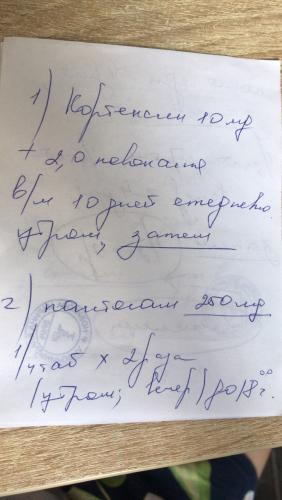 1) Кортексин 10 мг
+ 2,0 новокаина
в/м 10 дней ежедневно
утром, затем
2) пантогам 250 мг
1/4 таб x 2 раза
(утром; вечер) до 18 00 ч.